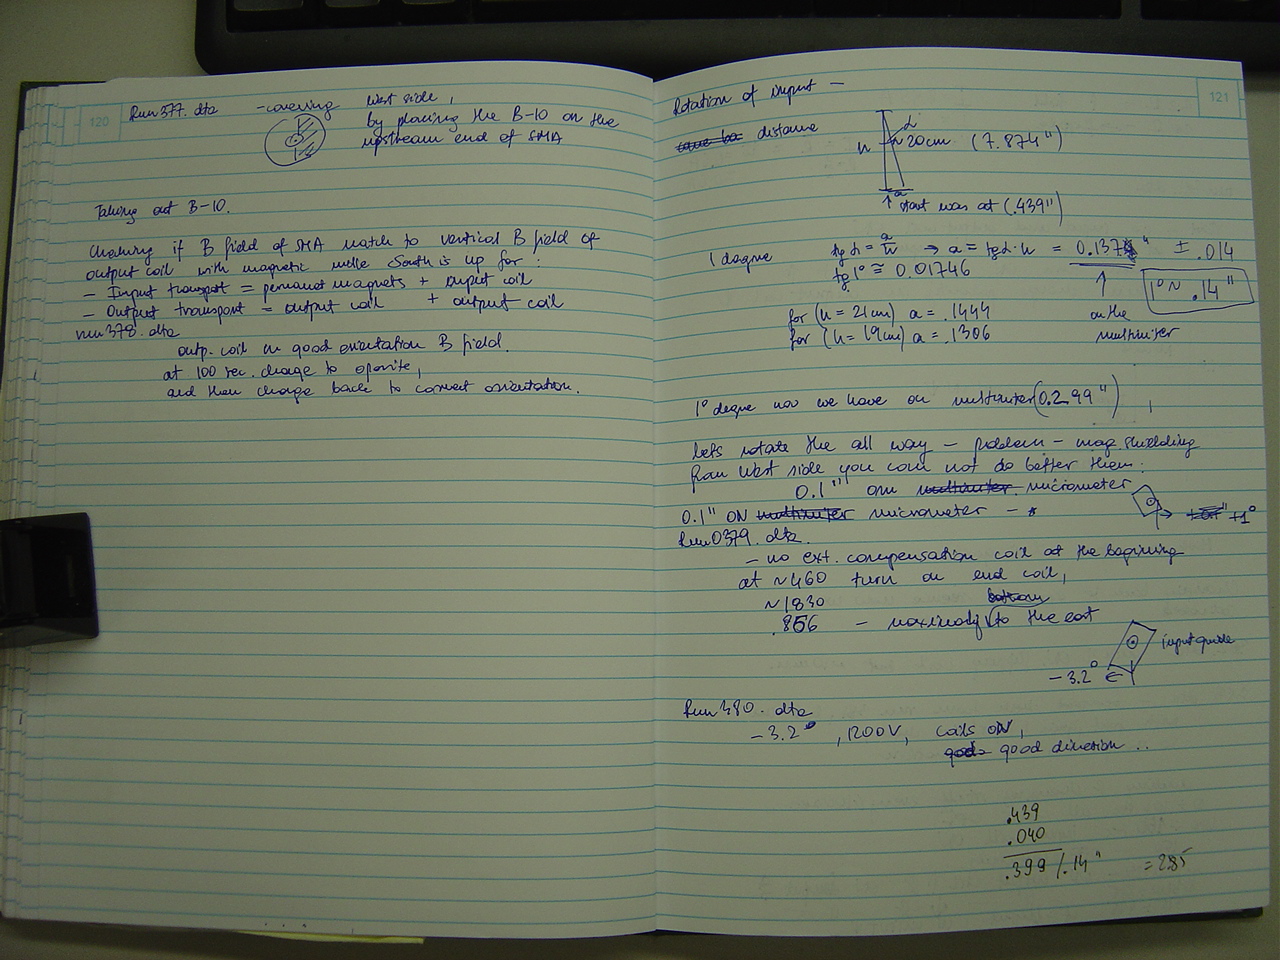 120
Run 377. dta - covering west side,
by placing the B-10 on the
upstream end of SMA
Taking out B-10.
Checking if B field of SMA match to vertical B field of
output coil with magnetic needle South is up for:
- Input transport = permanent magnets + input coil
- Output transport = output coil + output coil
run 378. dta
outp. coil in good orientation B field.
at 100 sec. change to oposite,
and then change back to correct orientation.
121
Rotation of input -
distance
α
h ~20cm (7.874")
a
start was at (.439")
1 degree tg α = a/h → a = tgα·h = 0.137 " ± .014
tg 1° ≅ 0.01746
1° ~ .14"
for (h = 21cm) a = .1444 on the
for (h = 19cm) a = .1306 multimiter
1° degree now we have on multimiter (0.299")
Lets rotate the all way - problem - mag. shielding
from west side you can not do better them:
0.1"" on multimiter micrometer
0.1" ON multimiter micrometer -
+1°
Run0379. dta.
- no ext. compensation coil at the beginning
at ~460 turn on end coil,
~1830 bottom
.856 - maximaly to the east
input guide
-3.2°
Run 380. dta
-3.2°, 1200V, coils ON,
good good direction ..
.439
.040
.399 /.14" = 2.85